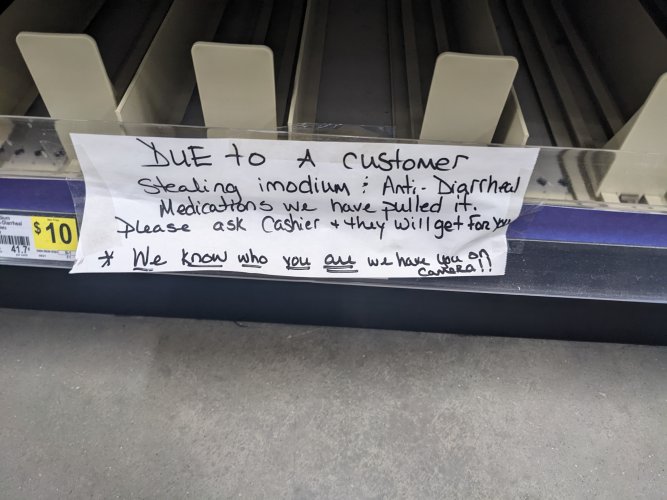 DUE to A customer
Stealing imodium & Anti-Diarrheal
Medications we have pulled it.
Please ask Cashier + they will get For you
* We know who you are we have you on
camera!!
$10
41.7¢